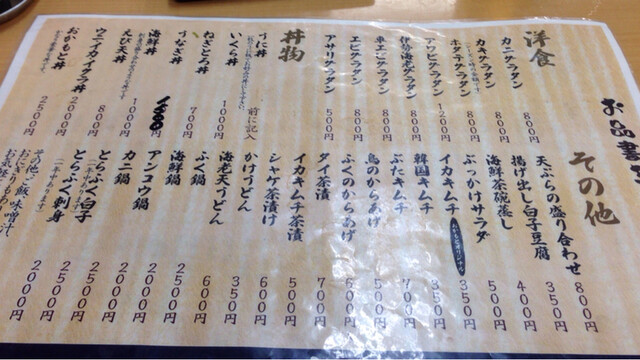 お品書
洋食
カニグラタン 800円
カキグラタン 800円
ホタテグラタン 800円
アワビグラタン 1200円
伊勢海老グラタン
車エビグラタン 800円
エビグラタン 800円
アサリグラタン 500円
丼物
うに丼 前に記入
いくら丼 1000円
ねぎとろ丼 700円
うなぎ丼
海鮮丼
えび天丼 1000円
ウニイクラ丼 800円
おかもと丼 2000円
2500円
その他
天ぷらの盛り合わせ 800円
揚げ出し白子豆腐 350円
海鮮茶碗蒸し 400円
ぶっかけサラダ 500円
イカキムチ おかもとオリジナル 350円
韓国キムチ 350円
ぶたキムチ 700円
鳥のからあげ 500円
ふくのからあげ 600円
タイ茶漬 700円
イカキムチ茶漬 500円
シャケ茶漬け 600円
かけうどん 350円
海老天うどん 600円
ふく鍋
海鮮鍋 2500円
アンコウ鍋 2000円
カニ鍋 2000円
とらふく白子 2500円
とらふく刺身 2500円
その他、ご飯、味噌汁、 2000円
おにぎり
お気軽